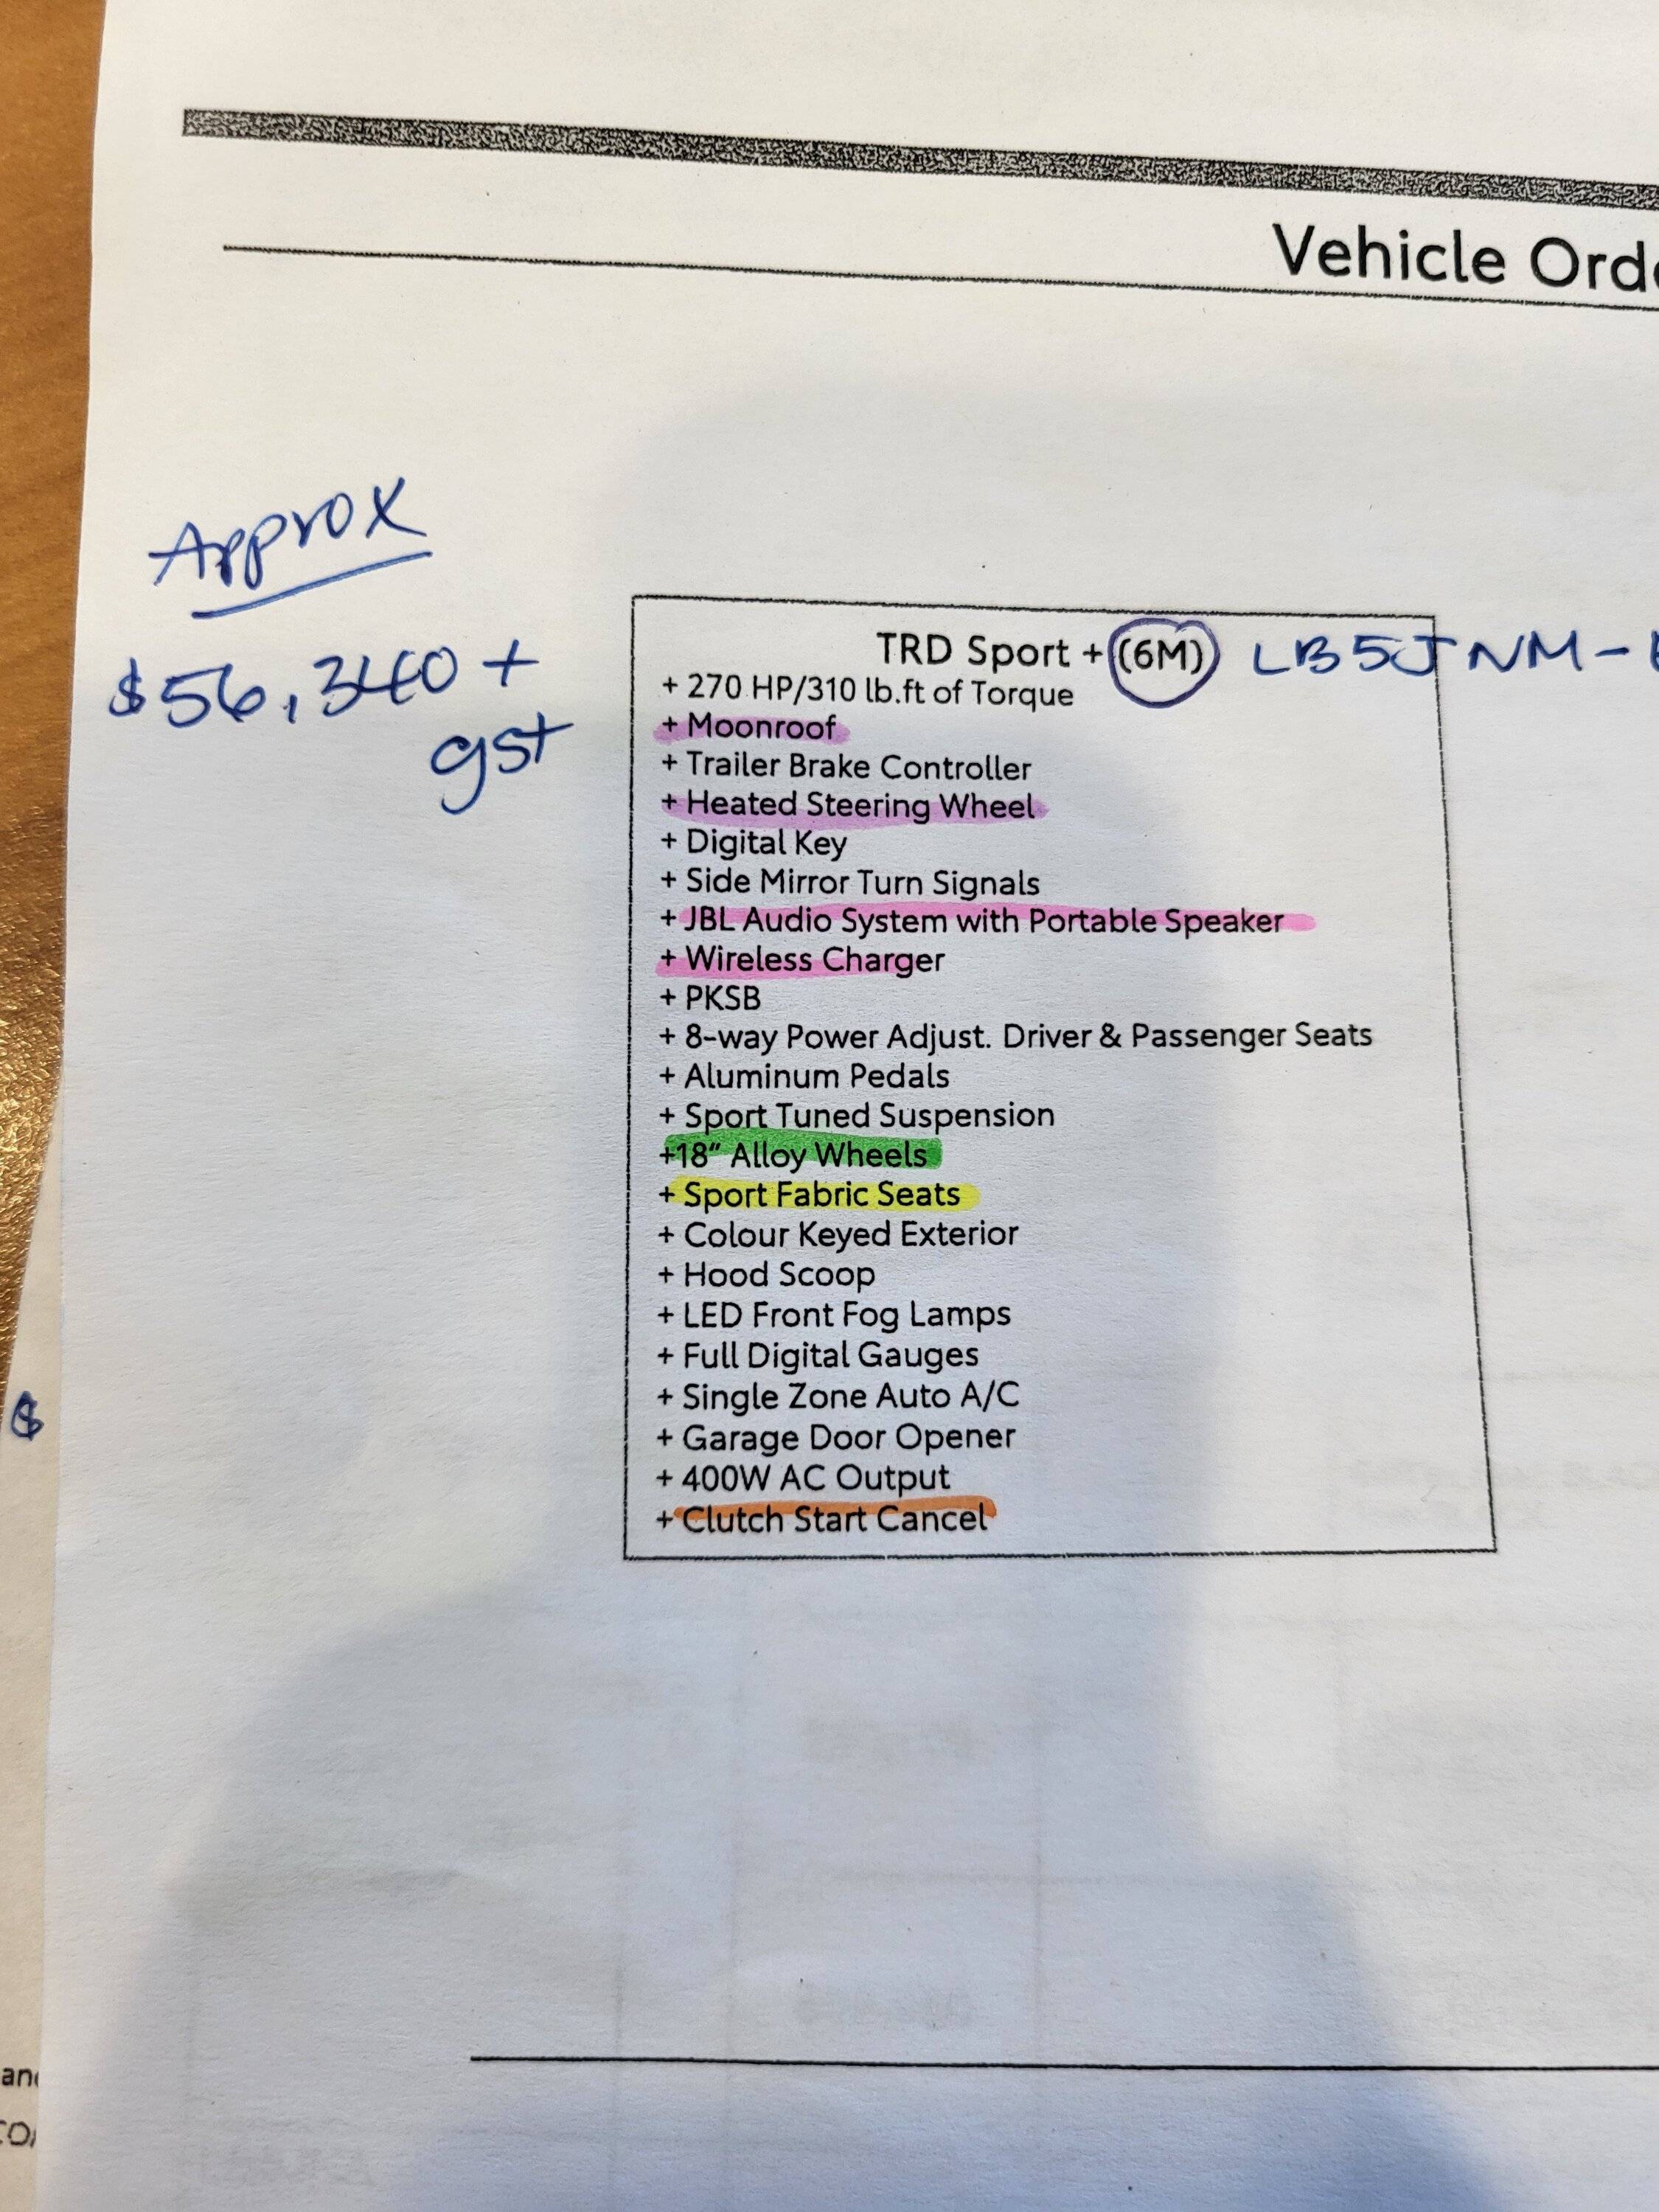 Vehicle Ord
Approx
$56,340 +
gst
TRD Sport + (6M) LB5JNM-
+ 270 HP/310 lb.ft of Torque
+ Moonroof
+ Trailer Brake Controller
+ Heated Steering Wheel
+ Digital Key
+ Side Mirror Turn Signals
+ JBL Audio System with Portable Speaker
+ Wireless Charger
+ PKSB
+ 8-way Power Adjust. Driver & Passenger Seats
+ Aluminum Pedals
+ Sport Tuned Suspension
+18" Alloy Wheels
+ Sport Fabric Seats
+ Colour Keyed Exterior
+ Hood Scoop
+ LED Front Fog Lamps
+ Full Digital Gauges
+ Single Zone Auto A/C
+ Garage Door Opener
+ 400W AC Output
+ Clutch Start Cancel
$